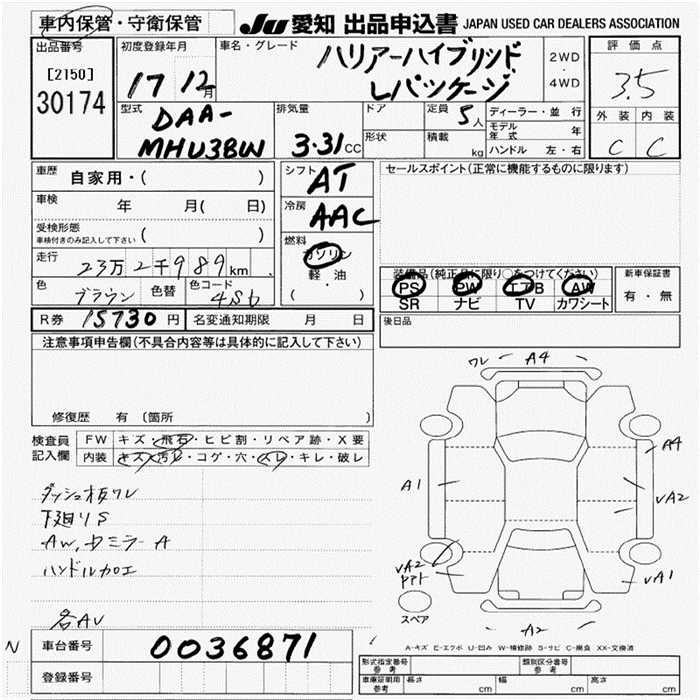 車内保管・守衛保管
JU 愛知 出品申込書 JAPAN USED CAR DEALERS ASSOCIATION
出品番号
[2150]
30174
初度登録年月
17 12月
車名・グレード
ハリアーハイブリッド
Lパッケージ
2WD
・
4WD
評価点
3.5
外装 内装
C C
型式
DAA-
MHU38W
排気量
3.31 CC
ドア
形状
定員 5人
積載 kg
ディーラー・並行
モデル年式 年
ハンドル 左・右
車歴 自家用・( )
車検 年 月( 日)
受検形態
車検付きのみ記入して下さい ( )
走行 23万2千989km
色 ブラウン 色替 色コード 4S6
R券 15730円 名変通知期限 月 日
シフト AT
冷房 AAC
燃料
ガソリン
軽・油
( )
セールスポイント(正常に機能するものに限ります)
装備品(純正品に限り○をつけてください)
PS PW エアB AW
SR ナビ TV カワシート
新車保証書
有・無
後日品
注意事項申告欄(不具合内容等は具体的に記入して下さい)
修復歴 有 (箇所
検査員記入欄
FW キズ・飛石・ヒビ割・リペア跡・X要
内装 キズ・汚レ・コゲ・穴・スレ・キレ・破レ
ダッシュ板ワレ
下廻りS
AW,ドミラーA
ハンドルカロエ
各AU
N
車台番号 0036871
登録番号
ワレ A4
A4
A1
UA2
UA2
UA1
A2
スペア
A-キズ E-エクボ U-凹み W-補修跡 S-サビ C-腐食 XX-交換済
形式指定番号 参考
類別区分番号 参考
車庫証明用 参考 長さ cm 幅 cm 高さ cm